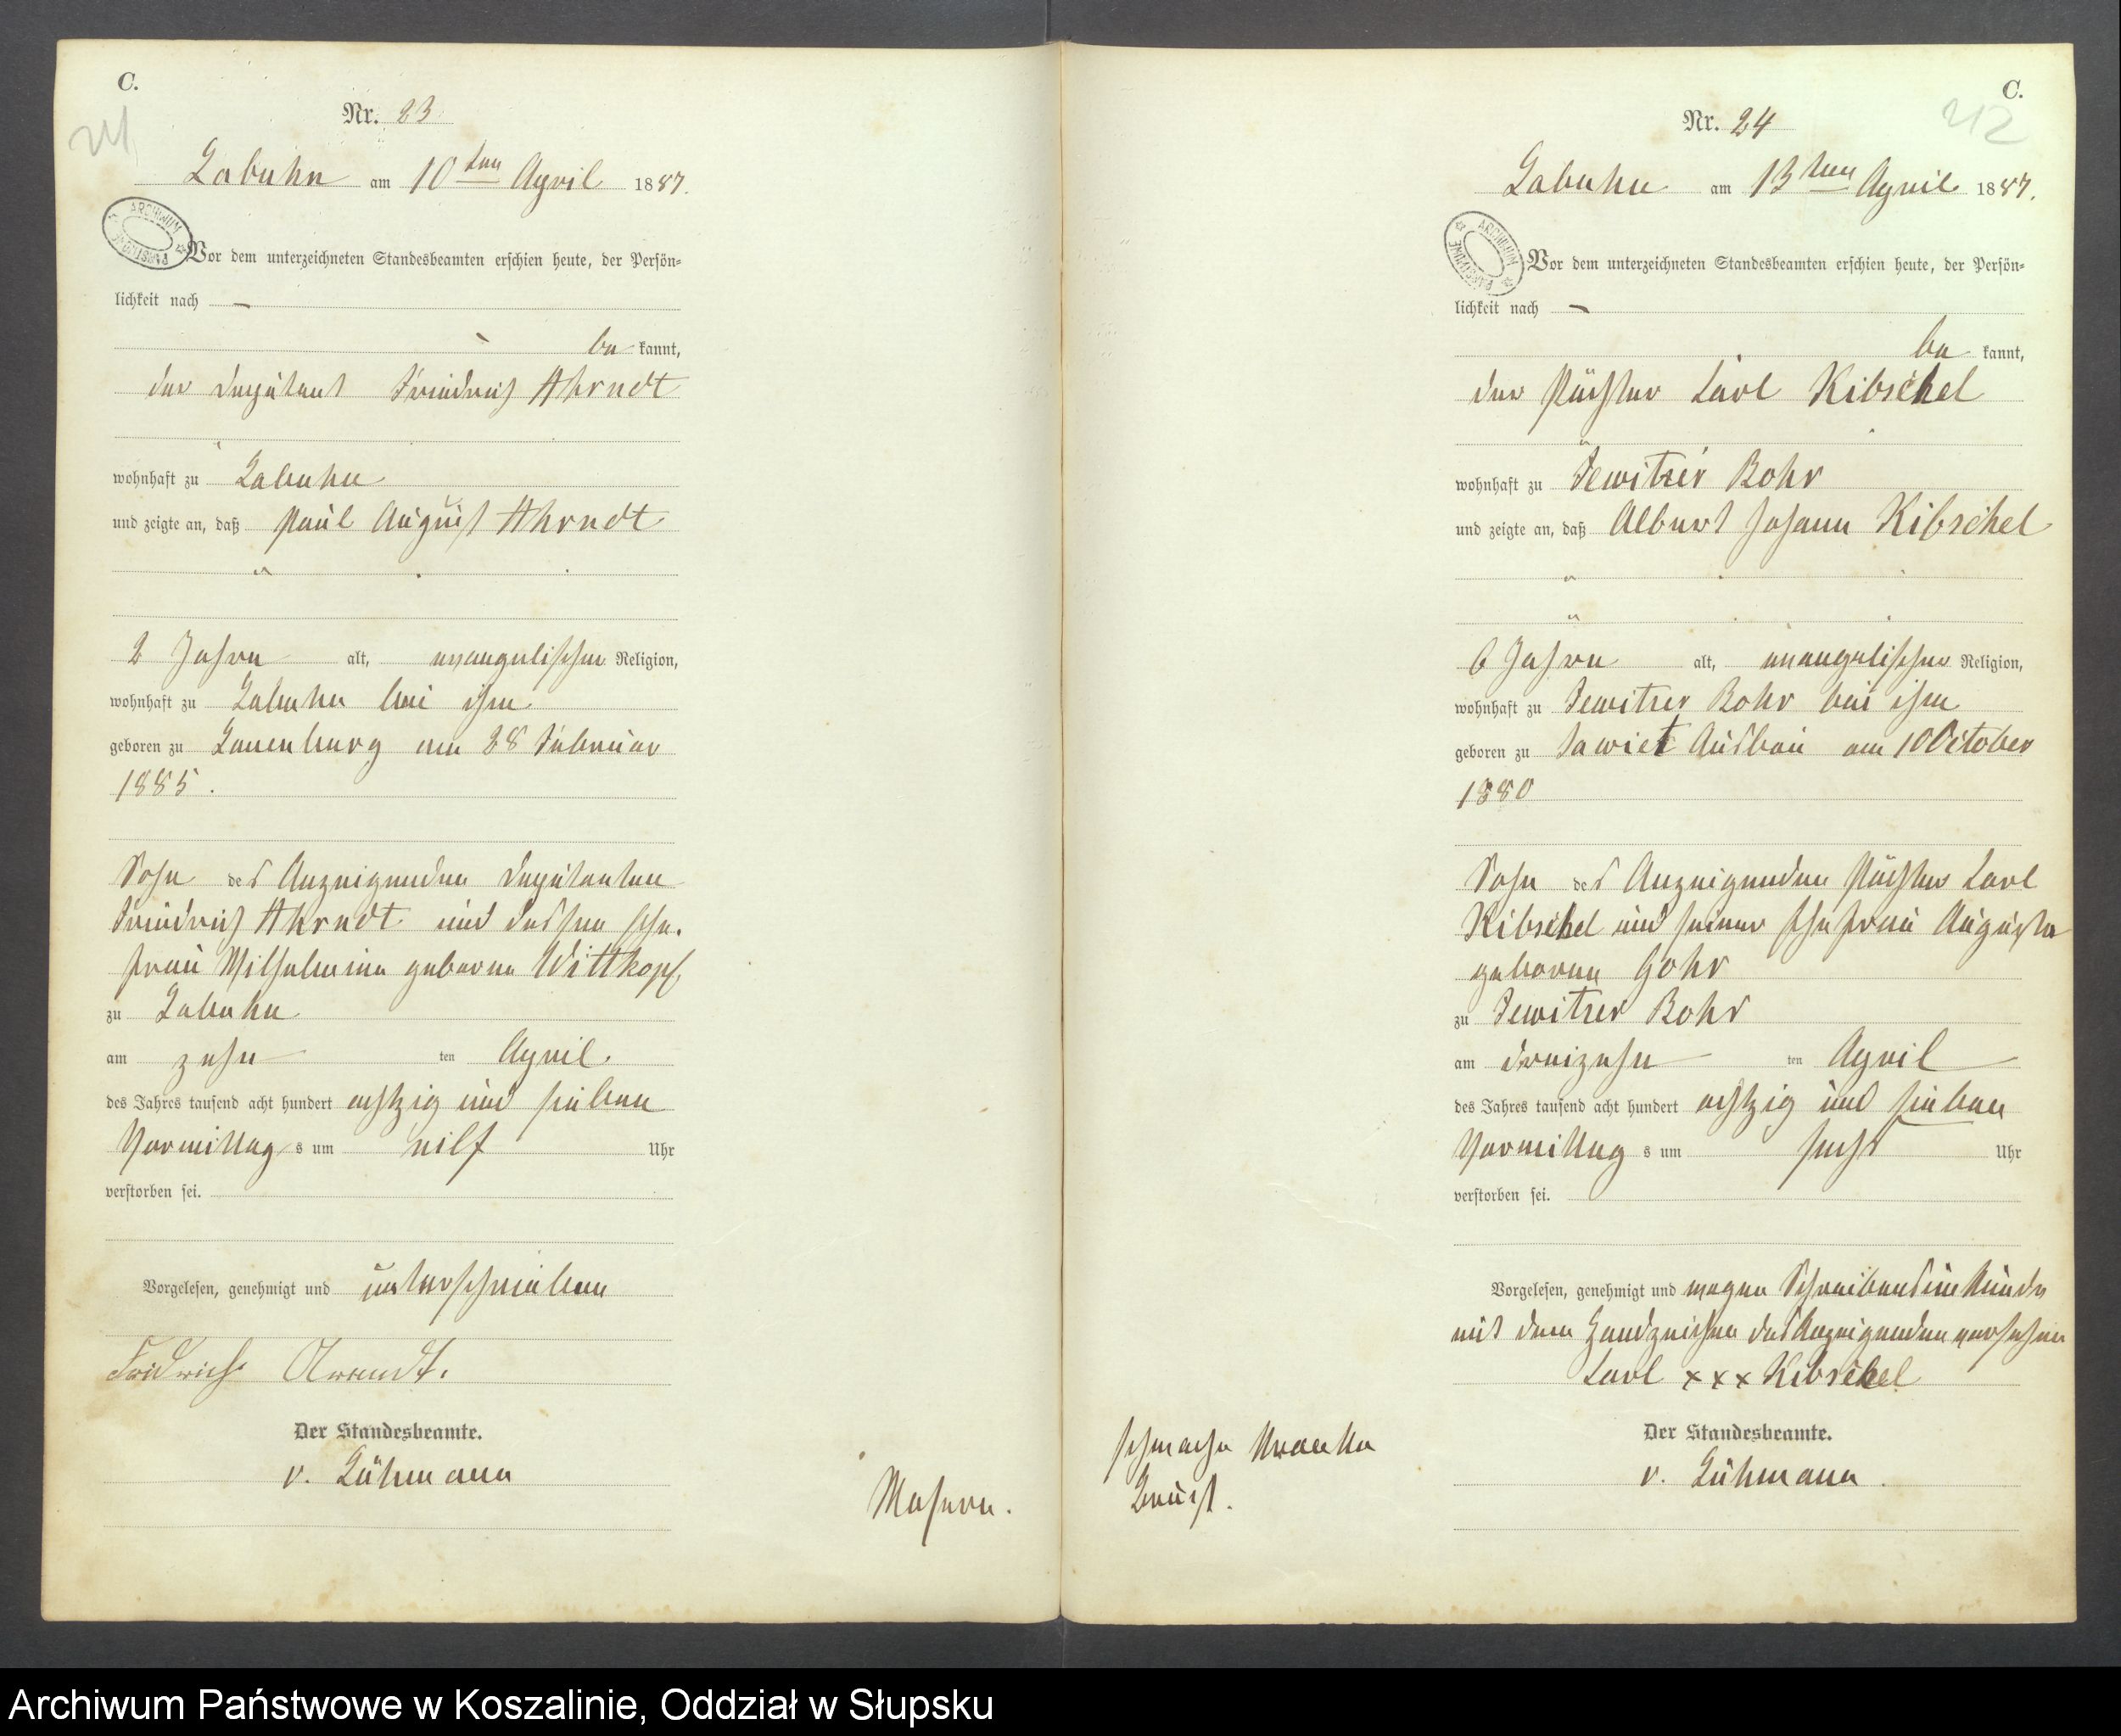 C.
Nr. 23
Labuhn am 10ten April 1887.
ARCHIWUM PAŃSTWOWE
Vor dem unterzeichneten Standesbeamten erschien heute, der Persön-
lichkeit nach —
be kannt,
der Deputant Friedrich Ahrndt
wohnhaft zu Labuhn
und zeigte an, daß Paul August Ahrndt
2 Jahre alt, evangelischer Religion,
wohnhaft zu Labuhn bei ihm
geboren zu Lauenburg am 28 Februar
1885.
Sohn des Anzeigenden Deputanten
Friedrich Ahrndt und dessen Ehe-
frau Wilhelmine geborne Wittkopf
zu Labuhn
am zehn ten April.
des Jahres tausend acht hundert achtzig und sieben
Vormittag s um eilf Uhr
verstorben sei.
Vorgelesen, genehmigt und unterschrieben
Fridrich Arendt.
Der Standesbeamte.
v. Lühmann
Masern.
C.
212
Nr. 24
Labuhn am 13ten April 1887.
ARCHIWUM PAŃSTWOWE
Vor dem unterzeichneten Standesbeamten erschien heute, der Persön-
lichkeit nach —
be kannt,
der Pächter Carl Kibschel
wohnhaft zu Jewitzer Bohr
und zeigte an, daß Albert Johann Kibschel
6 Jahre alt, evangelischer Religion,
wohnhaft zu Jewitzer Bohr bei ihm
geboren zu Ausbau am 10 October
1880
Sohn des Anzeigenden Pächter Carl
Kibschel und seiner Ehefrau Auguste
geborene Gohr
zu Jewitzer Bohr
am dreizehn ten April
des Jahres tausend acht hundert achtzig und sieben
Vormittag s um sechs Uhr
verstorben sei.
Vorgelesen, genehmigt und wegen Schreibensunkunde
mit dem Handzeichen des Anzeigenden versehen
Carl xxx Kibschel
Der Standesbeamte.
v. Lühmann.
schwache kranke
Brust.
Archiwum Państwowe w Koszalinie, Oddział w Słupsku